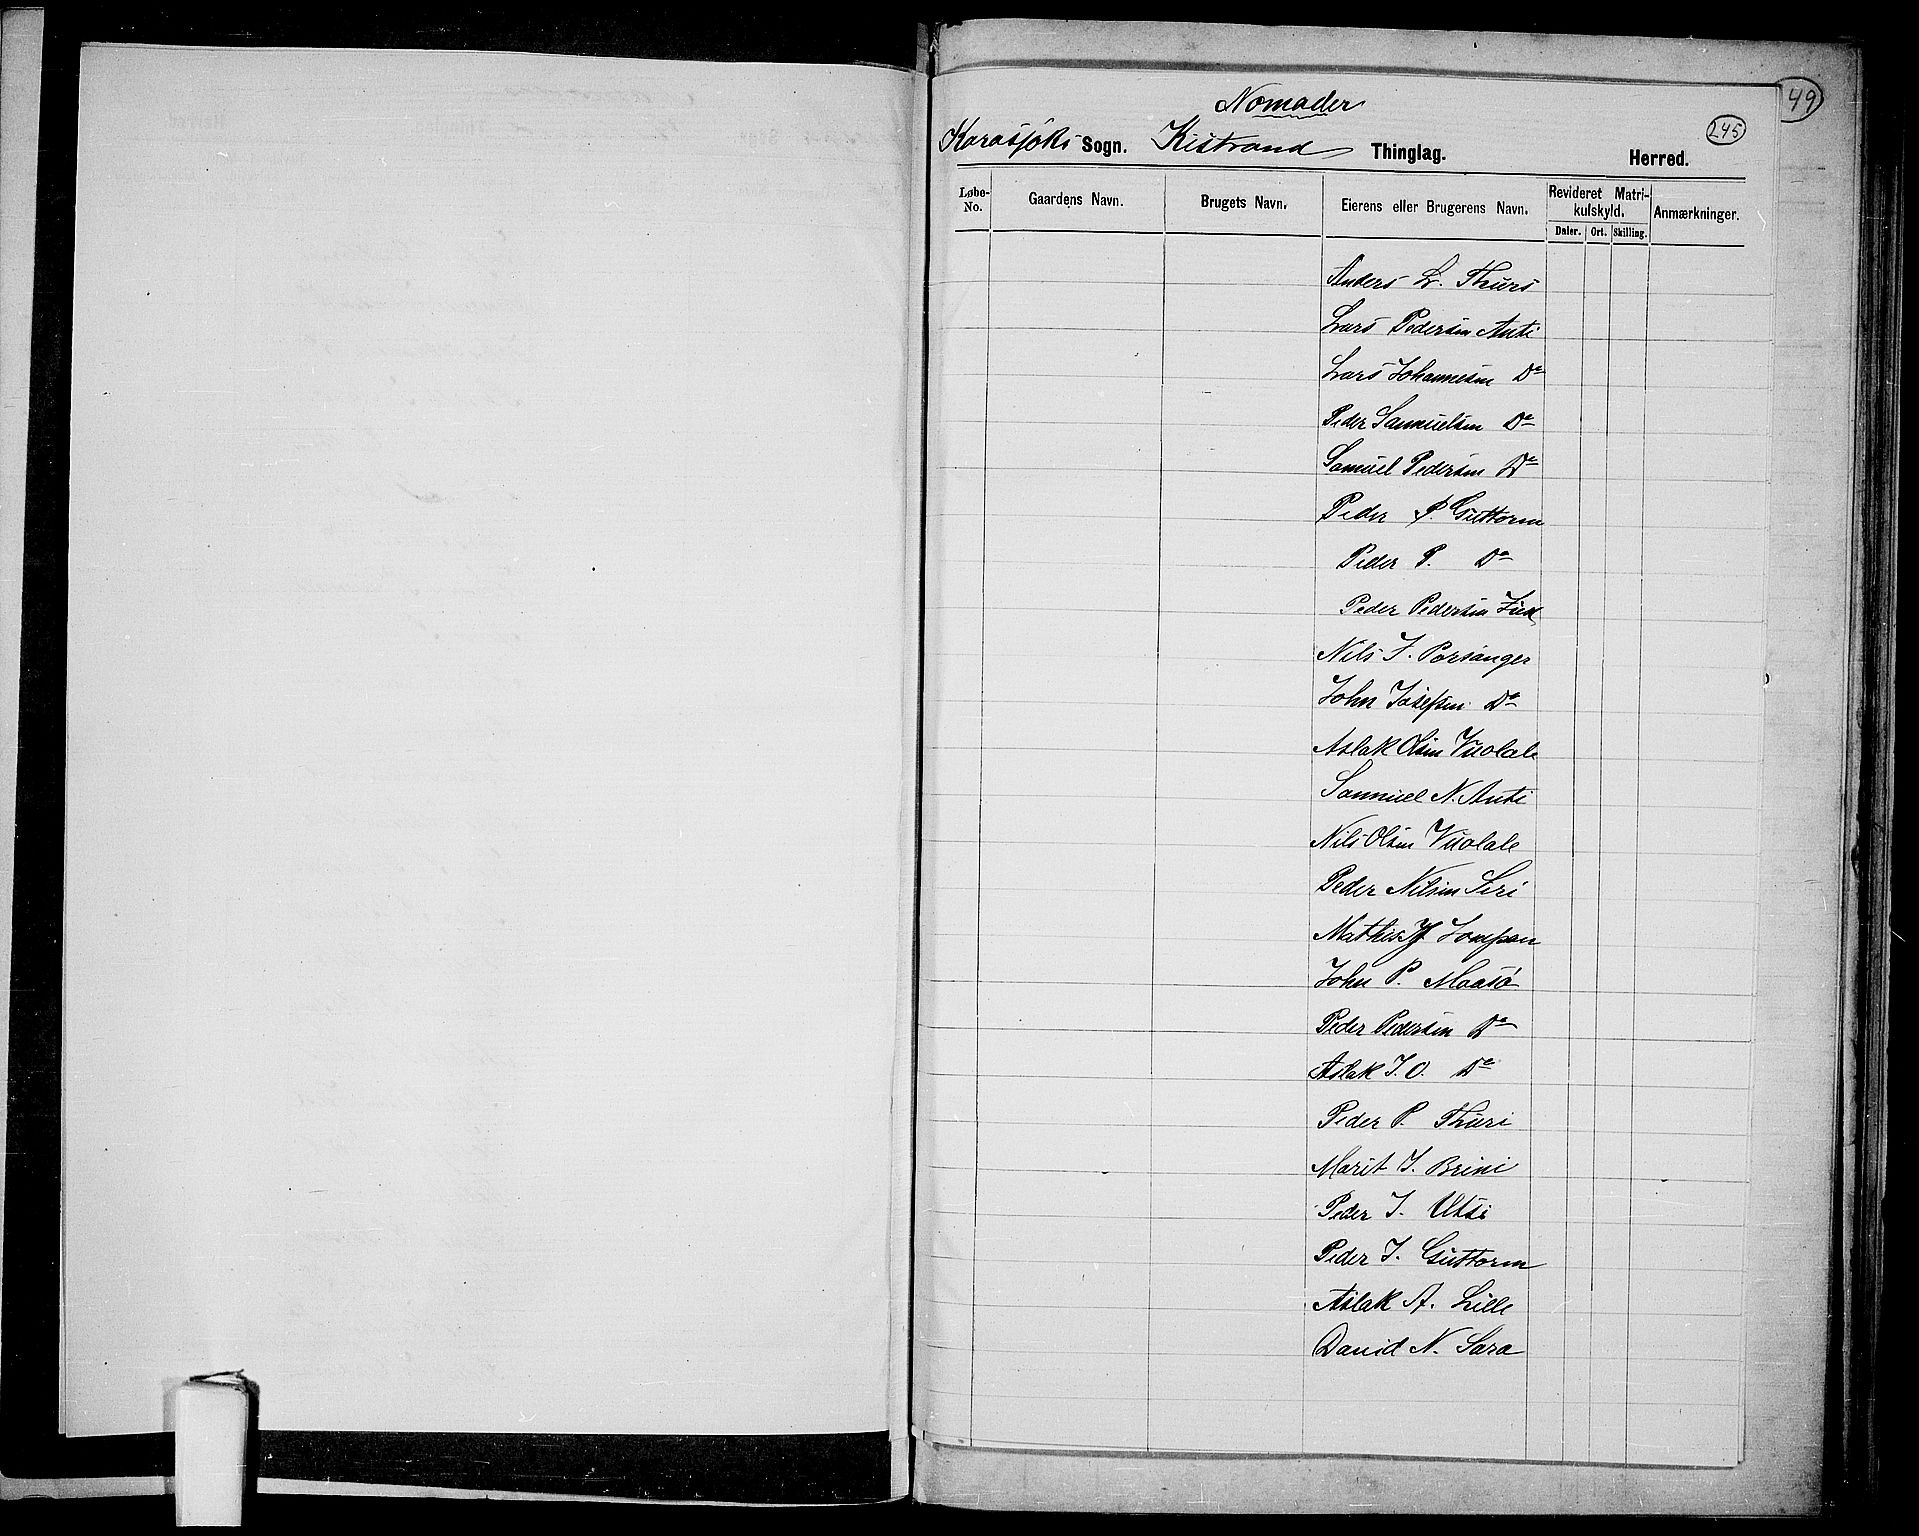 49
Nomader
245
Karasjoks Sogn. Kistrand Thinglag. Herred.
Løbe-No. Gaardens Navn. Brugets Navn. Eierens eller Brugerens Navn. Revideret Matri-kulskyld. Anmærkninger.
Daler. Ort. Skilling.
Anders L. Thuri
Lars Pedersen Anti
Lars Johannesen Do
Peder Sammuelsen Do
Samuel Pedersen Do
Peder P. Guttorm
Peder P. Do
Peder Pedersen
Nils J. Porsanger
John Josefsen Do
Aslak Olsen Vuolale
Sammuel N. Anti
Nils Olsen Vuolale
Peder Nilsen Siri
Mathis Jompan
John P. Maasø
Peder Pedersen Do
Aslak J. O. Do
Peder P. Thuri
Marit J. Brini
Peder J. Utsi
Peder J. Guttorm
Aslak A. Lille
David N. Sara